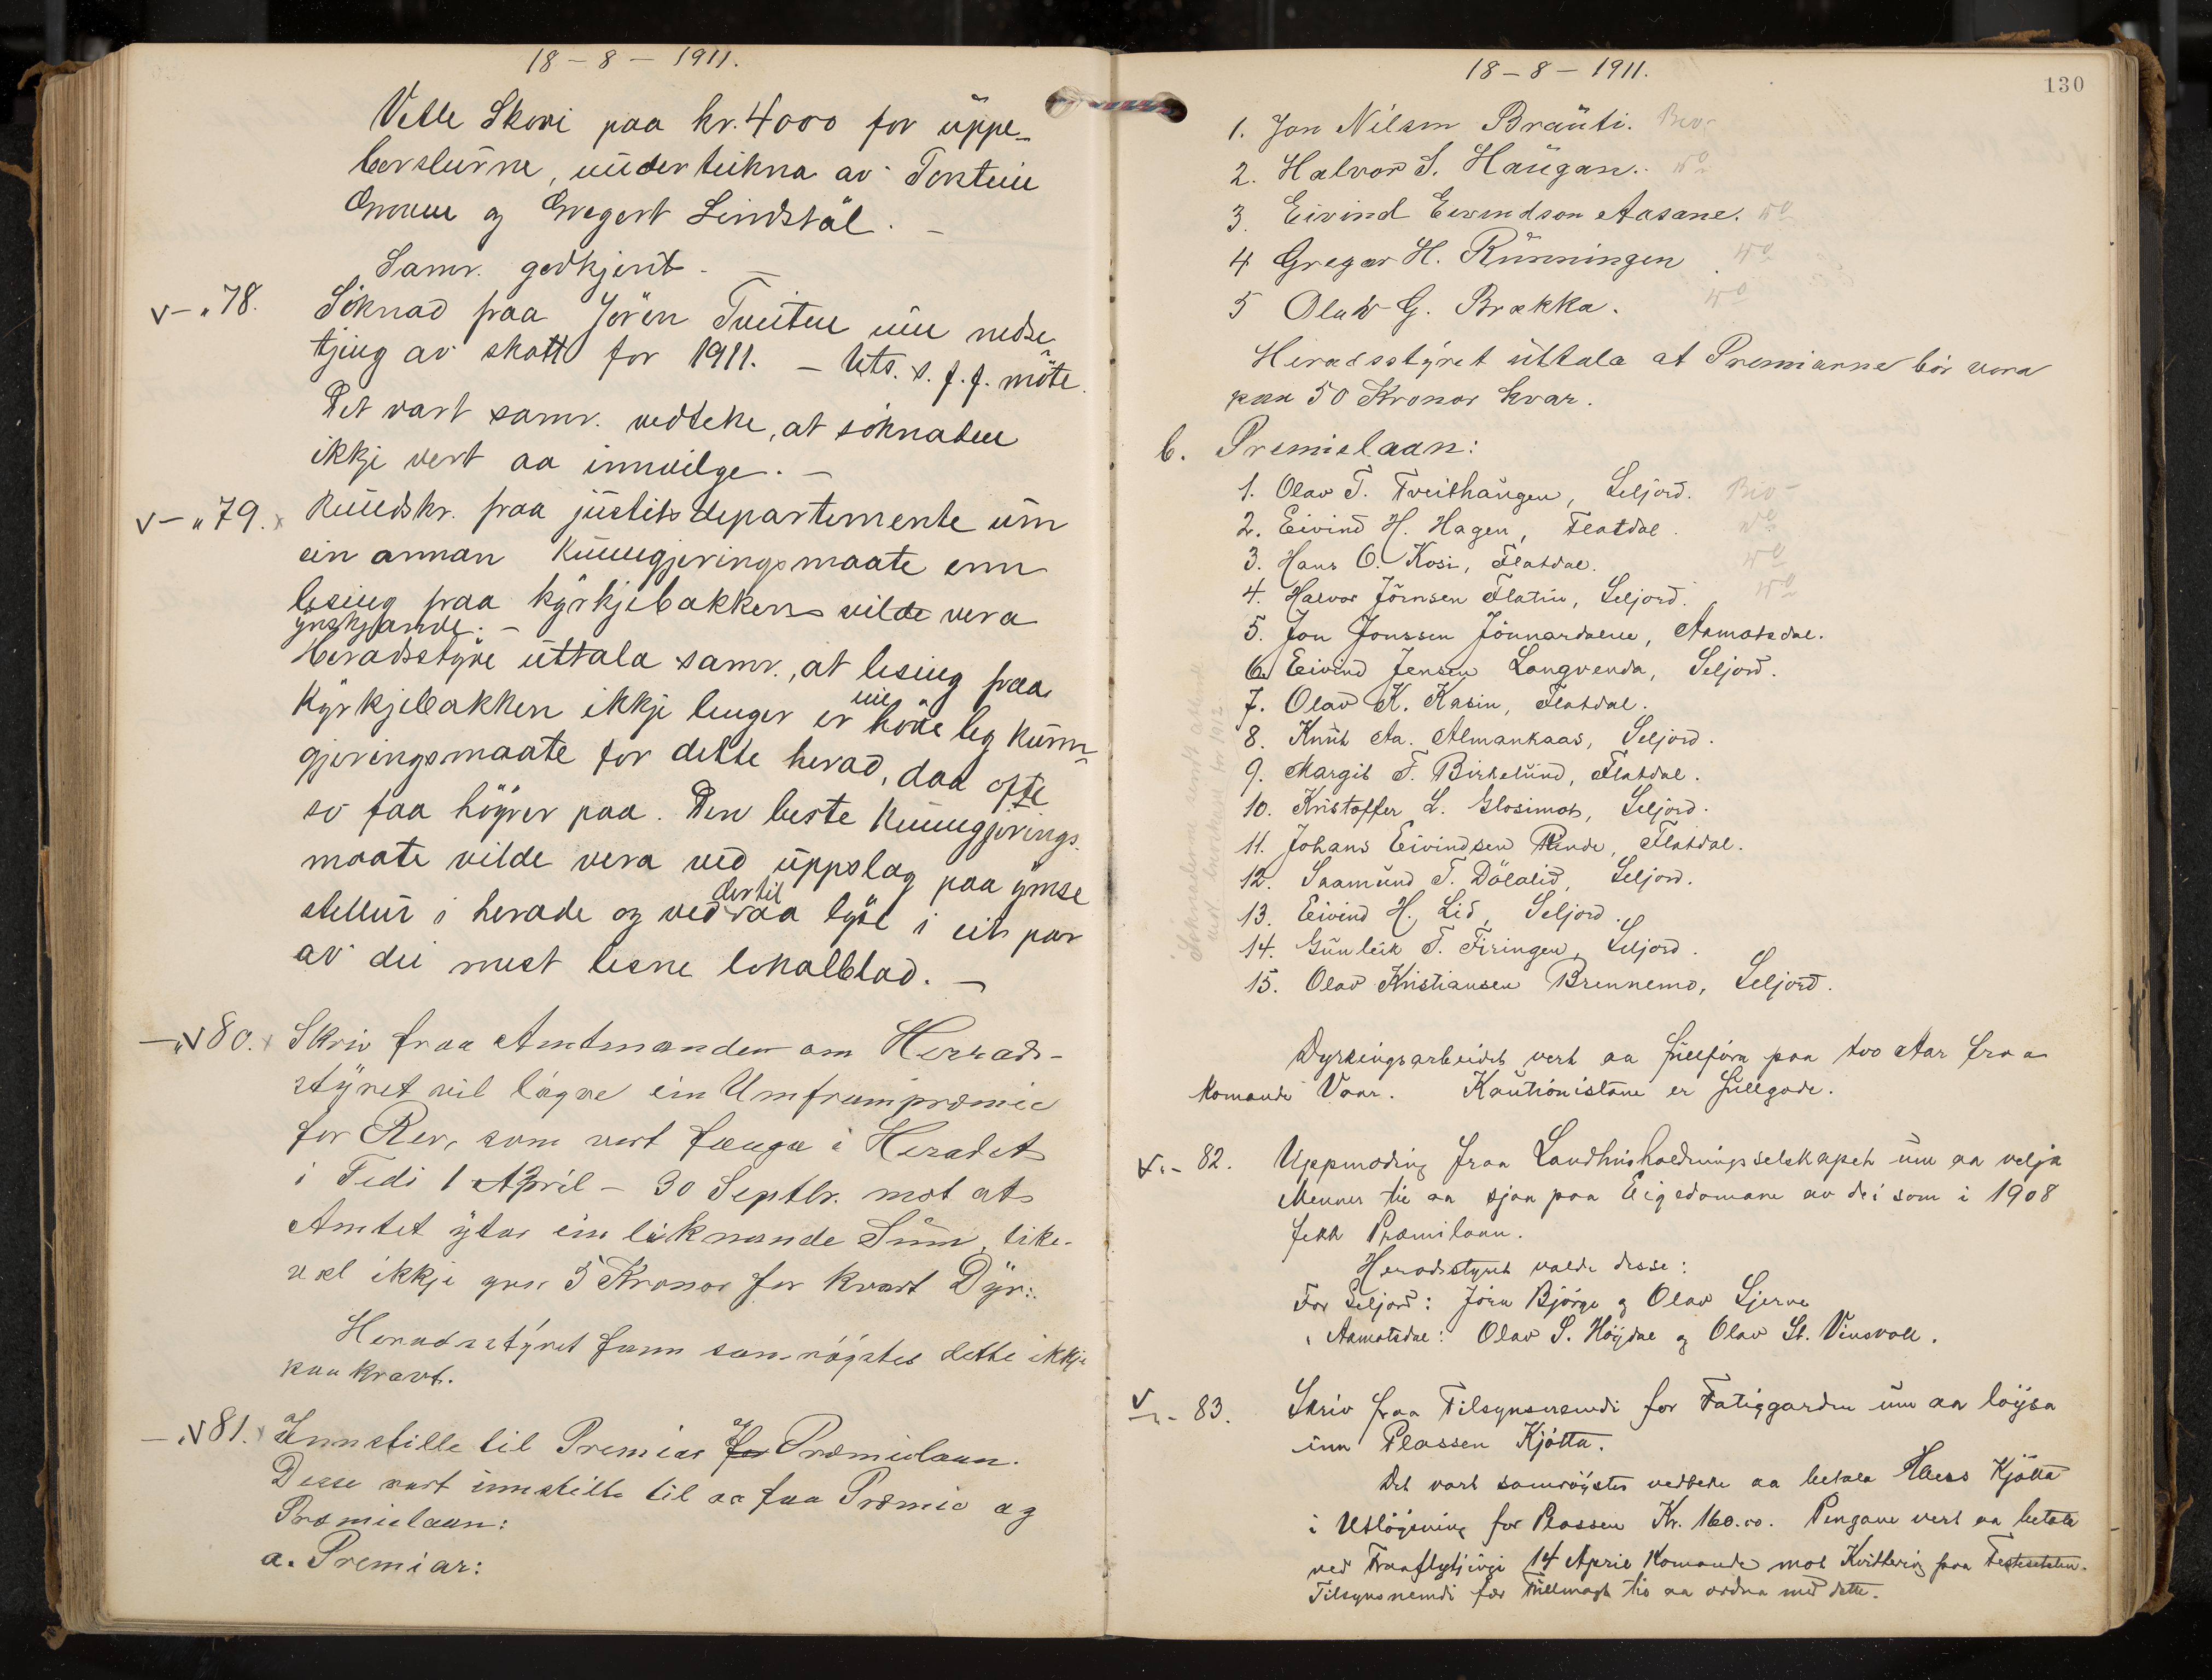 18 - 8 - 1911.
Vetle Skori paa kr. 4000 for uppe-
berslurne, underteikna av Tortein
Groven og Gregert Lindstäl. -
Samr. godkjent. -
v - " 78. Söknad fraa Jören Tveiten um nedse
tjing av skatt for 1911. - Uts. s. f. f. möte.
Det vart samr. vedteke, at söknaden
ikkje vert aa innvilge. -
v - " 79. x Rundskr. fraa justitsdepartemente um
ein annan kunngjeringsmaate enn
lesing fraa kyrkjebakken vilde vera
ynskjande. -
Heradsstyre uttala samr., at lesing fraa
kyrkjebakken ikkje lenger er ein höveleg kunn-
gjeringsmaate for dette herad, daa ofte
so faa höyrer paa. Den beste kunngjerings-
maate vilde vera ved uppslag paa ymse
stellur i herade og ved dertil raa lyse i eit par
av dei mest lesne lokalblad. -
- " v 80. x Skriv fraa Amtmanden om Herrads-
styret vil lágve ein Umframpræmie
for Rev, som vert fanga i Heradet
i Tidi 1 April - 30 Septbr. mot at
Amtet ytar ein liknande Sum, like-
vel ikkje yver 5 Kronor for kvart Dyr:.
Heradsstyret fann samröystes dette ikkje
paakravt.
- " v 81. x Innstille til Premiar og Præmielaan.
Desse vart innstillte til aa faa Præmie og
Præmielaan:
a. Premiar:
18 - 8 - 1911.
130
1. Jon Nilsen Bräuti. Bev-
2. Halvor S. Haugan. do
3. Eivind Eivindson Aasane. do
4 Gregar H. Runningen do
5 Olav G. Brekka. do
Heradsstyret uttala at Premiarne bör vera
paa 50 Kronor kvar.
b. Premielaan:
1. Olav T. Tveithaugen, Seljord. Bev-
2. Eivind H. Hagen, Flatdal. do
3. Hans O. Kosi, Flatdal. do
4. Halvor Jörnsen Flatin, Seljord. do
5. Jon Jonssen Jönnardalen, Aamotsdal.
6. Eivind Jensen Langvenda, Seljord.
7. Olav K. Kasin, Flatdal.
8. Knut Aa. Almankaas, Seljord.
9. Margit T. Birkelund, Flatdal.
10. Kristoffer L. Glosimot, Seljord.
11. Johans Eivindsen Rinde, Flatdal.
12. Saamund T. Dölalid, Seljord.
13. Eivind H. Lid, Seljord.
14. Gunleik T. Firingen, Seljord.
15. Olav Kristiansen Brennemo, Seljord.
Söknaderne sendt attende
med for 1912.
Dyrkingsarbeidet vert aa fullföra paa tvo Aar fraa
komande Vaar. Kautionistane er fullgode.
v. - 82. Uppmoding fraa Landhusholdningsselskapet um aa velja
Menner til aa sjaa paa Eigedomane av dei som i 1908
fekk Præmilaan.
Heradsstyret valde desse:
For Seljord: Jörn Björge og Olav Ljerne
" Aamotsdal: Olav S. Höydal og Olav St. Vinsvall.
v - " - 83. Skriv fraa Tilsynsnemdi for Fatiggarden um aa löysa
inn Plassen Kjötta.
Det vart samröystes vedteke aa betala Kjötta
i Utlöysning for Plassen Kr. 160.00. Pengane vert aa betala
ved Fraaflytjingi 14 April komande mot Kvittering paa Festesetelen.
Tilsynsnemdi fær Fullmagt til aa ordna med dette.